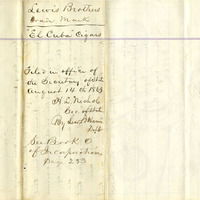 Lewis Brothers
Trade Mark
"El Cuba" Cigars
Filed in office of
the Secretary of State
August 14th 18
Sec. of State
By
Dept
See Book O
of Incorporations
Page 233